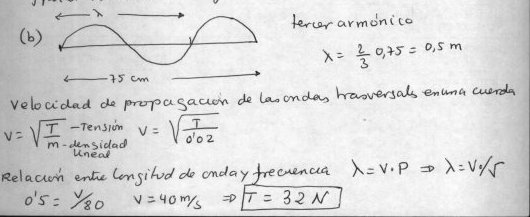 λ
tercer armónico
(b)
λ = 2/3 0,75 = 0,5 m
75 cm
Velocidad de propagación de las ondas trasversals en una cuerda
V = √T/m - Tensión - densidad lineal V = √T/0'02
Relación entre longitud de onda y frecuencia λ = V·P ⇒ λ = V·/ν
0'5 = V/80 V = 40 m/s ⇒ T = 32 N